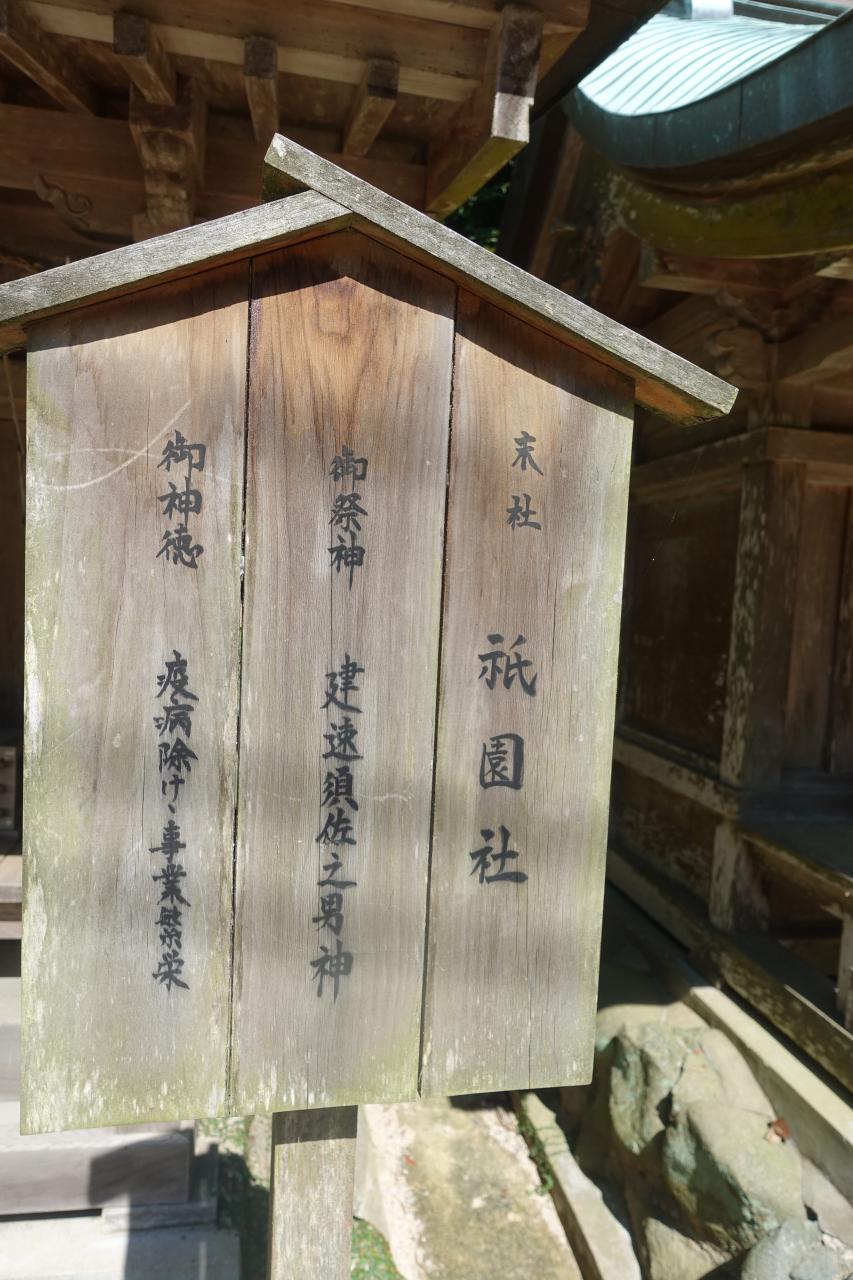 末社 祇園社
御祭神 建速須佐之男神
御神徳 疫病除け、事業繁栄